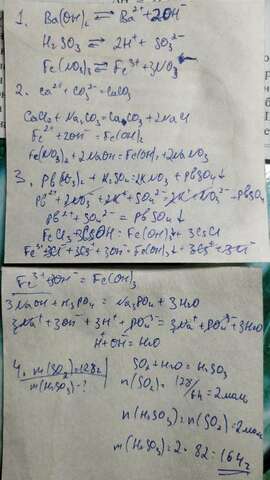 1. Ba(OH)₂ ⇄ Ba²⁺+2OH⁻
H₂SO₃ ⇄ 2H⁺ + SO₃²⁻
Fe(NO₃)₃ ⇄ Fe³⁺+3NO₃⁻
2. Ca²⁺+CO₃²⁻=CaCO₃
CaCl₂ + Na₂CO₃=CaCO₃+2NaCl
Fe²⁺+2OH⁻=Fe(OH)₂
Fe(NO₃)₂+2NaOH=Fe(OH)₂+2NaNO₃
3. Pb(NO₃)₂ + K₂SO₄=2KNO₃+PbSO₄↓
Pb²⁺+2NO₃⁻+2K⁺+SO₄²⁻=2K⁺+NO₃²⁻+PbSO₄
Pb²⁺+SO₄²⁻ = PbSO₄↓
FeCl₃+3CsOH=Fe(OH)₃↓+3CsCl
Fe³⁺+3Cl⁻+3Cs⁺+3OH⁻=Fe(OH)₃↓+3Cs⁺+3Cl⁻
Fe³⁺+3OH⁻ = Fe(OH)₃
3NaOH+H₃PO₄ = Na₃PO₄+3H₂O
3Na⁺+3OH⁻+3H⁺+PO₄³⁻=3Na⁺+PO₄³⁻+3H₂O
H⁺+OH⁻=H₂O
4. m(SO₂)=128г
m(H₂SO₃)-?
SO₂+H₂O=H₂SO₃
n(SO₂)=128/64=2моль
n(H₂SO₃)=n(SO₂)=2моль
m(H₂SO₃)=2·82=164г